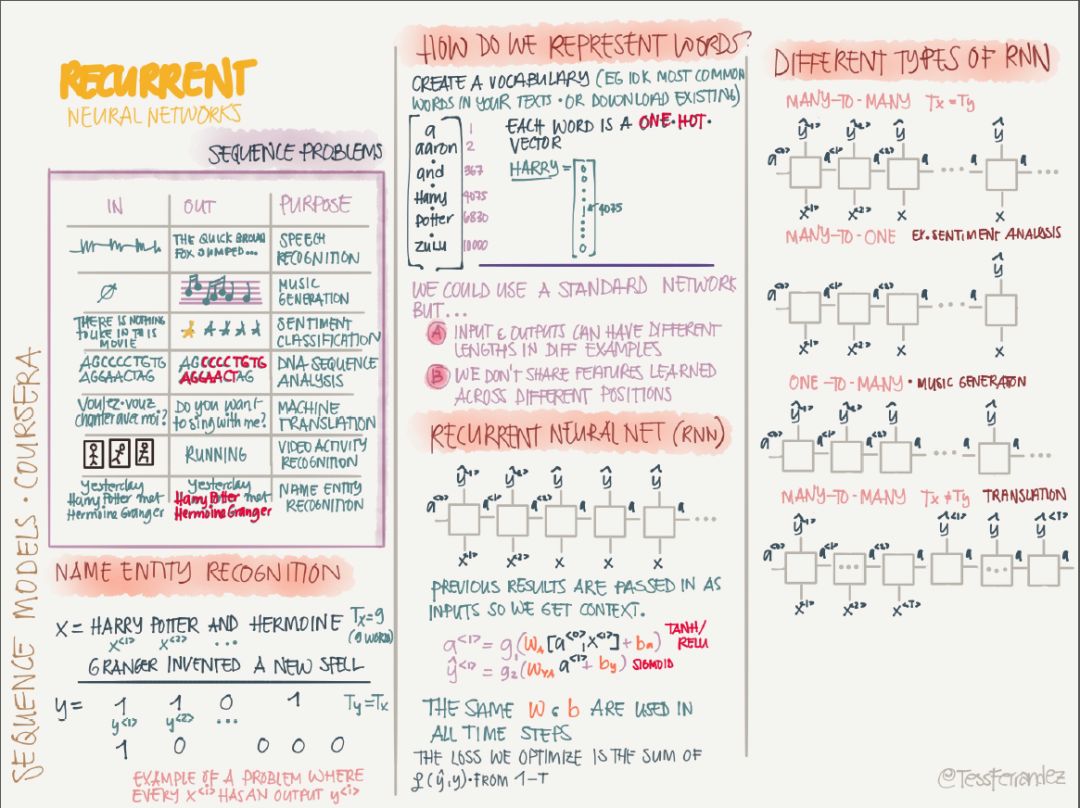 RECURRENT
NEURAL NETWORKS
SEQUENCE PROBLEMS
IN OUT PURPOSE
THE QUICK BROWN
FOX JUMPED...
SPEECH
RECOGNITION
MUSIC
GENERATION
THERE IS NOTHING
TO LIKE IN THIS
MOVIE
SENTIMENT
CLASSIFICATION
AGCCCCTGTG
AGGAACTAG
AGCCCCTGTG
AGGAACTAG
DNA SEQUENCE
ANALYSIS
Voulez-vouz
chanter avec moi?
Do you want
to sing with me?
MACHINE
TRANSLATION
RUNNING
VIDEO ACTIVITY
RECOGNITION
Yesterday
Harry Potter met
Hermoine Granger
Yesterday
Harry Potter met
Hermoine Granger
NAME ENTITY
RECOGNITION
SEQUENCE MODELS · COURSERA
NAME ENTITY RECOGNITION
X = HARRY POTTER AND HERMOINE Tx=9
x<1> x<2> ... (9 WORDS)
GRANGER INVENTED A NEW SPELL
y = 1 1 0 1 Ty=Tx
y<1> y<2> ...
1 0 0 0 0
EXAMPLE OF A PROBLEM WHERE
EVERY X<i> HAS AN OUTPUT y<i>
HOW DO WE REPRESENT WORDS?
CREATE A VOCABULARY (EG 10K MOST COMMON
WORDS IN YOUR TEXTS · OR DOWNLOAD EXISTING)
a 1
aaron 2
and 367
Harry 4075
Potter 6830
zulu 10000
EACH WORD IS A ONE·HOT·
VECTOR
HARRY = 0 0 1 0
4075
WE COULD USE A STANDARD NETWORK
BUT...
A INPUT & OUTPUTS CAN HAVE DIFFERENT
LENGTHS IN DIFF EXAMPLES
B WE DON'T SHARE FEATURES LEARNED
ACROSS DIFFERENT POSITIONS
RECURRENT NEURAL NET (RNN)
ŷ<1> ŷ<2> ŷ ŷ ŷ
a<0> a<1> a<2> a a a ...
x<1> x<2> x x x
PREVIOUS RESULTS ARE PASSED IN AS
INPUTS SO WE GET CONTEXT.
a<1> = g₁(WA[a<0>,X<1>] + ba) TANH/
RELU
ŷ<1> = g₂(WYA a<1> + by) SIGMOID
THE SAME W & b ARE USED IN
ALL TIME STEPS
THE LOSS WE OPTIMIZE IS THE SUM OF
ℒ(ŷ,y) · FROM 1-T
DIFFERENT TYPES OF RNN
MANY-TO-MANY Tx=Ty
ŷ<1> ŷ<2> ŷ ŷ
a<0> a<1> a<2> a ... a a ...
x<1> x<2> x x
MANY-TO-ONE EX. SENTIMENT ANALYSIS
ŷ
a<0> a<1> a<2> a ... a
x<1> x<2> x x
ONE-TO-MANY · MUSIC GENERATION
ŷ<1> ŷ<2> ŷ ŷ
a<0> a<1> a<2> a ... a a ...
x<1>
MANY-TO-MANY Tx≠Ty TRANSLATION
ŷ<1> ŷ<1> ŷ ŷ<T>
a<0> a<1> a<2> a a a a
x<1> x<2> x<T>
@TessFerrandez